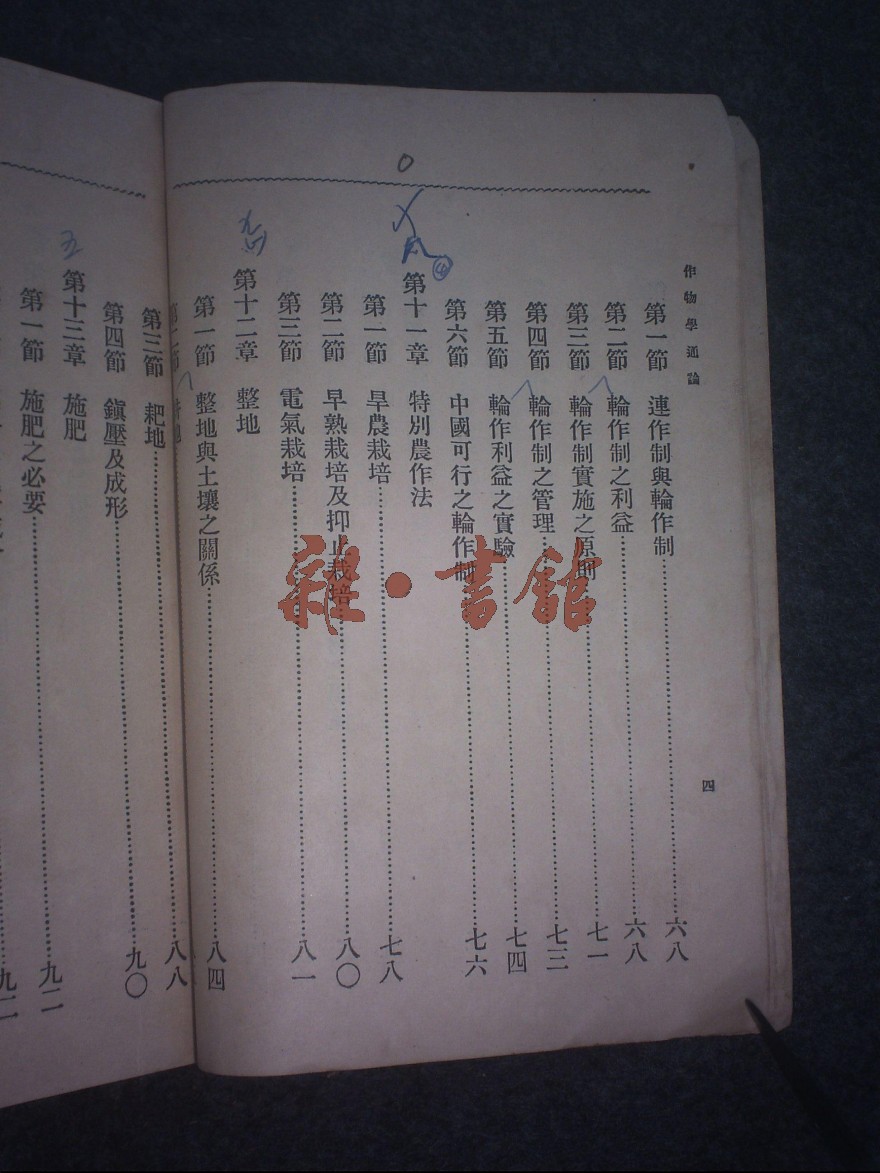 作物學通論
四
第一節　連作制與輪作制……六八
第二節　輪作制之利益……六八
第三節　輪作制實施之原則……七一
第四節　輪作制之管理……七三
第五節　輪作利益之實驗……七四
第六節　中國可行之輪作制……七六
第十一章　特別農作法
第一節　旱農栽培……七八
第二節　早熟栽培及抑止栽培……八〇
第三節　電氣栽培……八一
第十二章　整地
第一節　整地與土壤之關係……八四
第二節
第三節　耙地……八八
第四節　鎭壓及成形……九〇
第十三章　施肥
第一節　施肥之必要……九二
九二
五
④
雜·書館